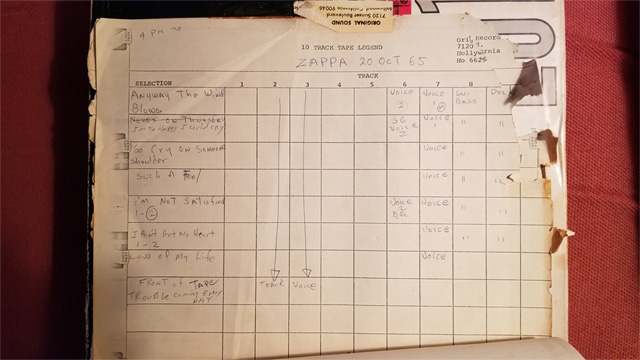 ORIGINAL SOUND
7120 Sunset Boulevard
Hollywood California 90046
4 PM
Record
7120
Ho 662
10 TRACK TAPE LEGEND
ZAPPA 20 OCT 65
TRACK
SELECTION 1 2 3 4 5 6 7 8
ANYWAY THE WIND Voice Voice
BLOWS 2 BASS
NEVER ON THURSDAY 3G Voice " "
I'm so Happy I could cry Voice
2
GO CRY ON SOMEONE Voice " "
shoulder
SUCH A Fool Voice "
I'M NOT SATISFIED Voice Voice " "
1-2 2
I Ain't Got No Heart Voice " "
1-2
Love of My Life Voice
FRONT OF TAPE TRACK VOICE
TROUBLE coming Every
DAY